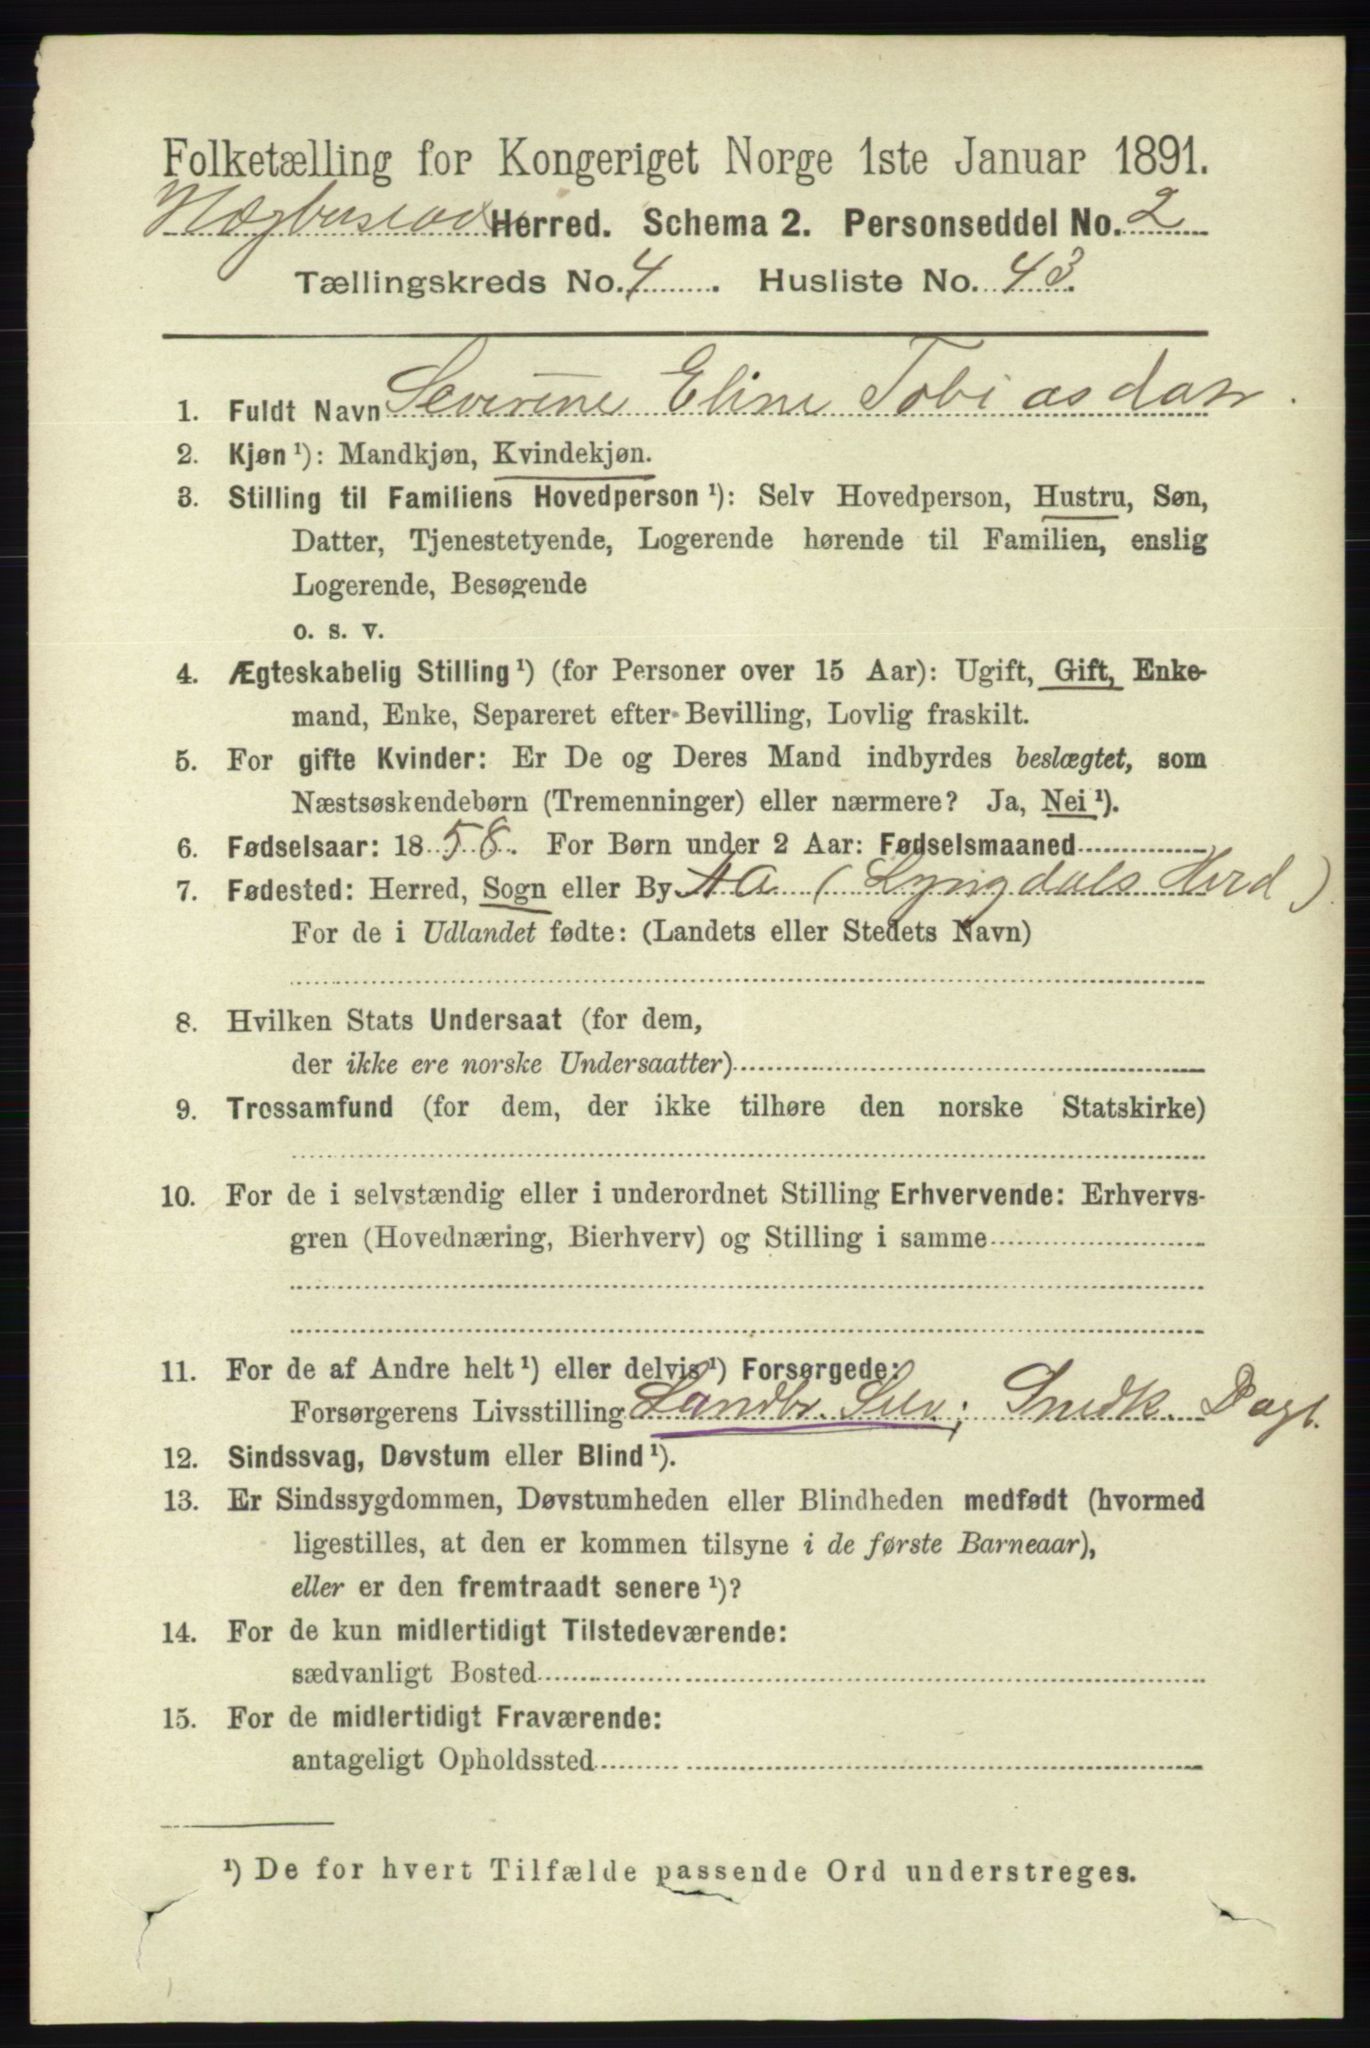 Folketælling for Kongeriget Norge 1ste Januar 1891.
Hægbostad Herred. Schema 2. Personseddel No. 2
Tællingskreds No. 4. Husliste No. 43.
1. Fuldt Navn Severine Eline Tobiasdatr.
2. Kjøn ¹): Mandkjøn, Kvindekjøn.
3. Stilling til Familiens Hovedperson ¹): Selv Hovedperson, Hustru, Søn,
Datter, Tjenestetyende, Logerende hørende til Familien, enslig
Logerende, Besøgende
o. s. v.
4. Ægteskabelig Stilling ¹) (for Personer over 15 Aar): Ugift, Gift, Enke-
mand, Enke, Separeret efter Bevilling, Lovlig fraskilt.
5. For gifte Kvinder: Er De og Deres Mand indbyrdes beslægtet, som
Næstsøskendebørn (Tremenninger) eller nærmere? Ja, Nei ¹).
6. Fødselsaar: 1858. For Børn under 2 Aar: Fødselsmaaned
7. Fødested: Herred, Sogn eller By Aa (Lyngdals Herd)
For de i Udlandet fødte: (Landets eller Stedets Navn)
8. Hvilken Stats Undersaat (for dem,
der ikke ere norske Undersaatter)
9. Trossamfund (for dem, der ikke tilhøre den norske Statskirke)
10. For de i selvstændig eller i underordnet Stilling Erhvervende: Erhvervs-
gren (Hovednæring, Bierhverv) og Stilling i samme
11. For de af Andre helt ¹) eller delvis ¹) Forsørgede:
Forsørgerens Livsstilling Landbr. Selv; Snedk. Dagl.
12. Sindssvag, Døvstum eller Blind ¹).
13. Er Sindssygdommen, Døvstumheden eller Blindheden medfødt (hvormed
ligestilles, at den er kommen tilsyne i de første Barneaar),
eller er den fremtraadt senere ¹)?
14. For de kun midlertidigt Tilstedeværende:
sædvanligt Bosted
15. For de midlertidigt Fraværende:
antageligt Opholdssted
¹) De for hvert Tilfælde passende Ord understreges.